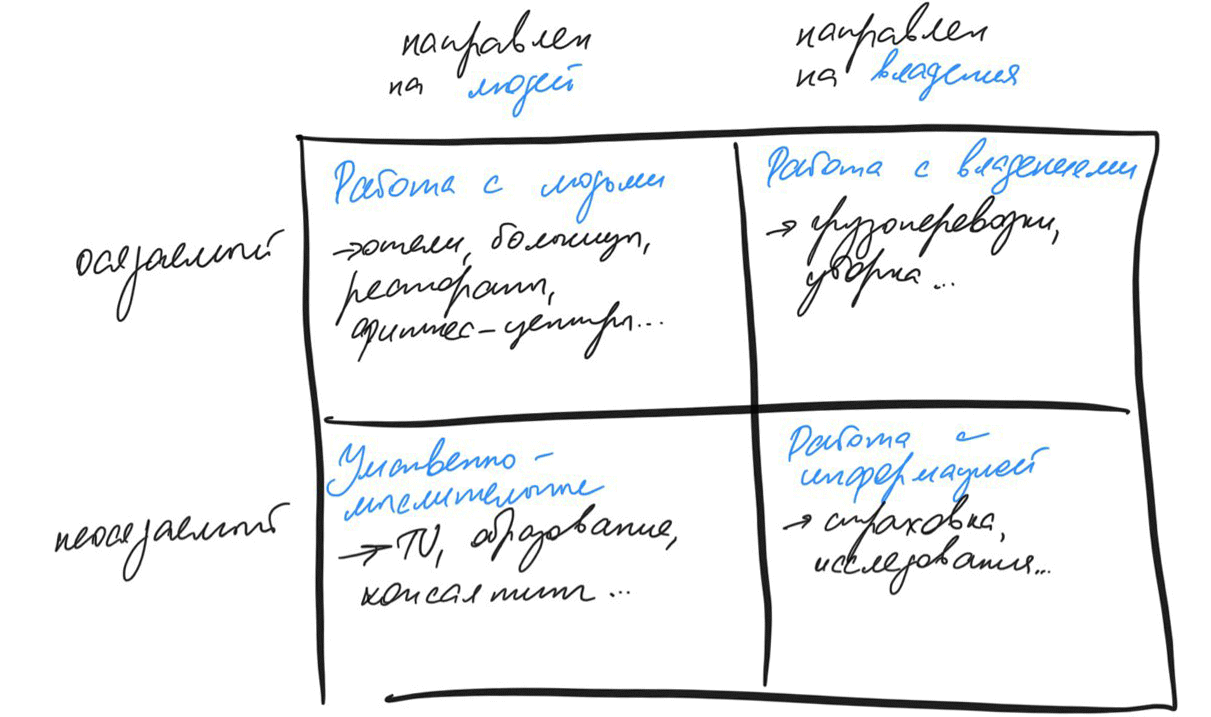 направлен
на людей
направлен
на владения
осязаемый
Работа с людьми
→ отели, больницы,
рестораны,
фитнес-центры...
Работа с владениями
→ грузоперевозки,
уборка...
неосязаемый
Умственно-
мыслительные
→ TV, образование,
консалтинг...
Работа с
информацией
→ страховка,
исследования...